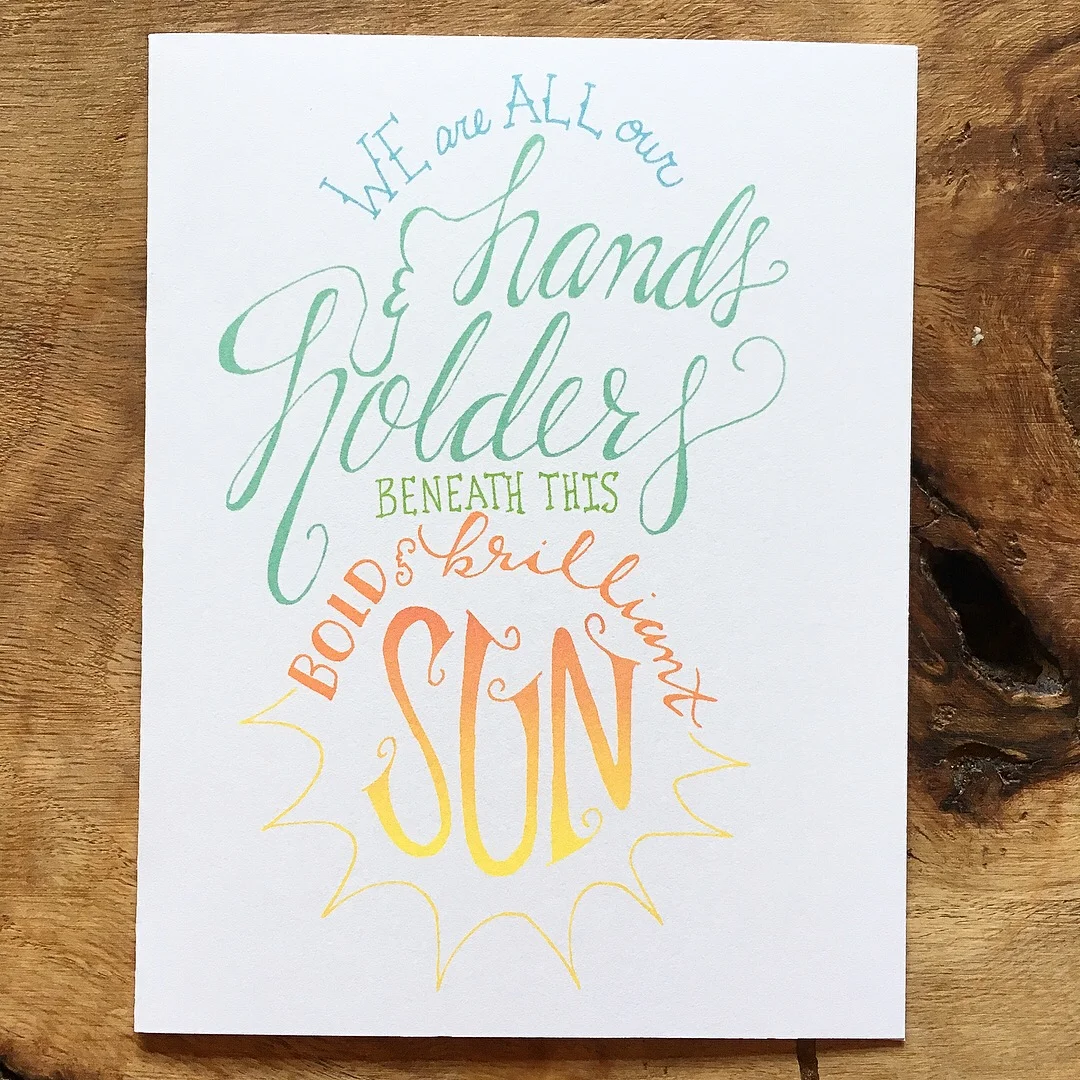 WE are ALL our
hands
& holders
BENEATH THIS
BOLD & brilliant
SUN